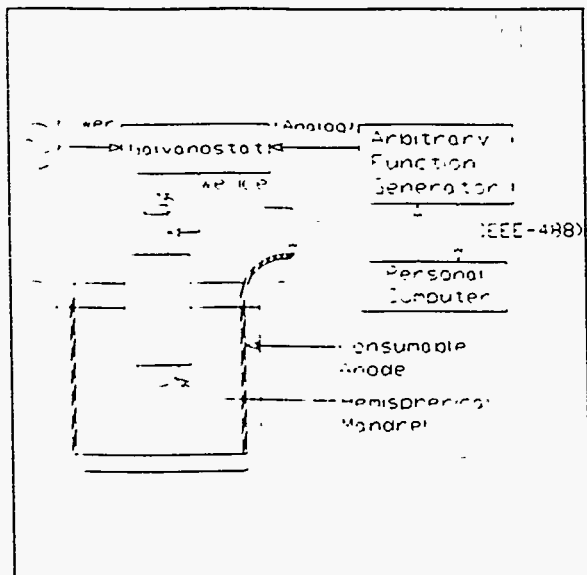 (Analog)
Galvanostat
Arbitrary
Function
Generator
(IEEE-488)
Personal
Computer
Consumable
Anode
Hemispherical
Mandrel